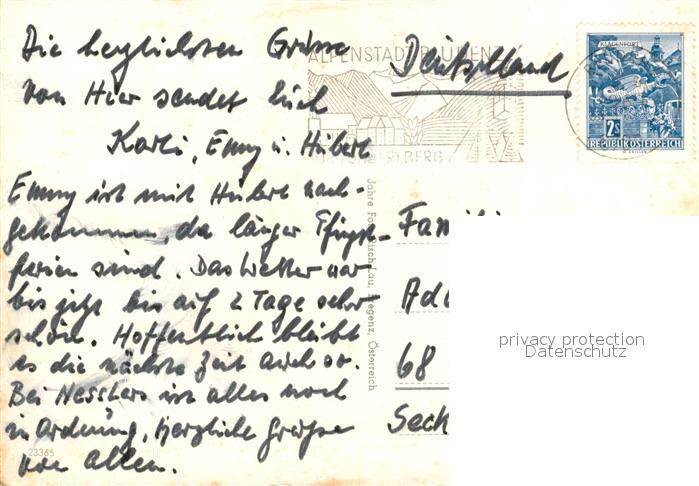 Die herzlichsten Grüsse
von Hier sendet Euch
Karli, Emmy u. Hubert
Emmy ist mit Hubert nach-
gekommen, da länger Pfingst-
ferien sind. Das Wetter war
bis jetzt bis auf 2 Tage sehr
schön. Hoffentlich bleibt
es die nächste Zeit auch so.
Bei Nesslers ist alles noch
in Ordnung, Herzliche Grüße
von allen.
23365
ALPENSTADT BLUDENZ
VORARLBERG
Deutschland
KLAGENFURT
2S
REPUBLIK ÖSTERREICH
Jahre Foto Risch-Lau, Bregenz, Österreich
Familie
Ado
68
Seck
privacy protection
Datenschutz